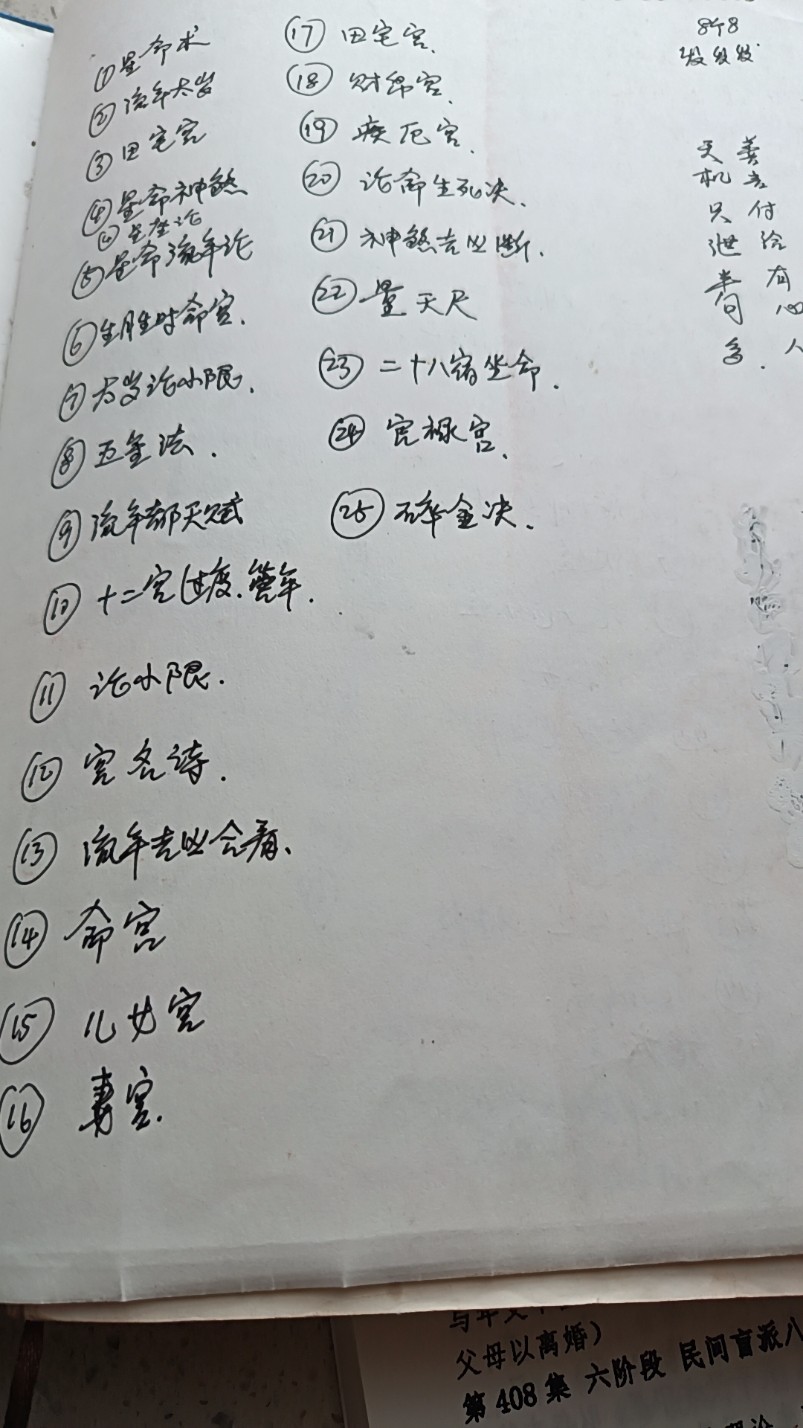 ①星命术
②流年太岁
③田宅宫
④星命神煞
④星座论
⑤星命流年论
⑥生月生时命宫.
⑦太岁论小限.
⑧五星法.
⑨流年都天赋
⑩十二宫过度.管年.
⑪论小限.
⑫宫名诗.
⑬流年吉凶会看、
⑭命宫
⑮儿女宫
⑯妻宫.
⑰田宅宫.
⑱财帛宫.
⑲疾厄宫.
⑳论命生死决.
㉑神煞吉凶断.
㉒量天尺
㉓二十八宿坐命.
㉔官禄宫.
㉕碎金决.
8个8
发发发
天机只泄
善言付给有心人
父母以离婚）
第 408 集 六阶段 民间盲派八